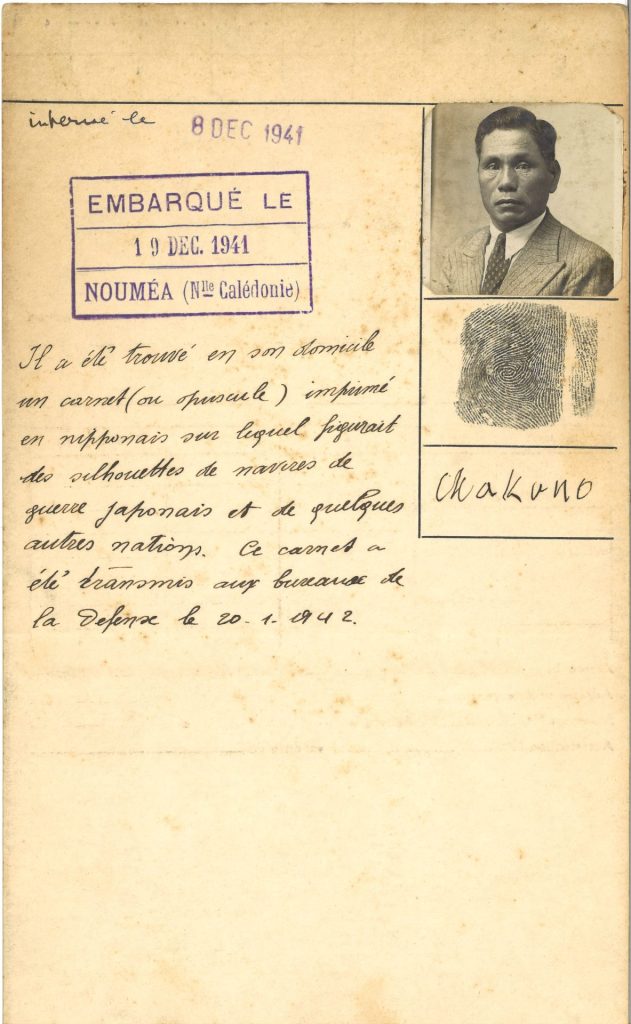 interné le 8 DEC 1941
EMBARQUÉ LE
19 DEC. 1941
NOUMÉA (Nlle Calédonie)
Il a été trouvé en son domicile
un carnet (ou opuscule) imprimé
en nipponais sur lequel figurait
des silhouettes de navires de
guerre japonais et de quelques
autres nations. Ce carnet a
été transmis aux bureaux de
la Defense le 20-1-1942.
Chakuno